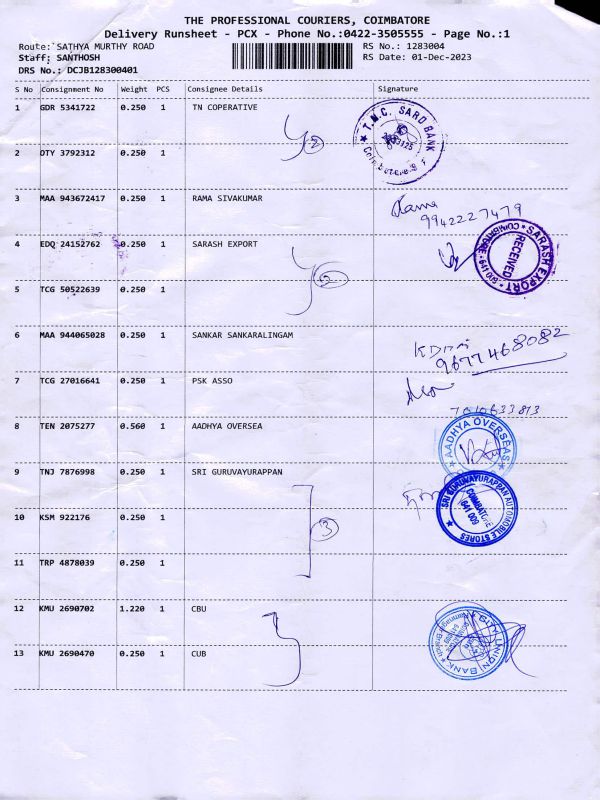 THE PROFESSIONAL COURIERS, COIMBATORE
Delivery Runsheet - PCX - Phone No.:0422-3505555 - Page No.:1
Route: SATHYA MURTHY ROAD
RS No.: 1283004
Staff: SANTHOSH
RS Date: 01-Dec-2023
DRS No.: DCJB128300401
S No Consignment No Weight PCS Consignee Details Signature
1 GDR 5341722 0.250 1 TN COPERATIVE
2
T.N.C. SARD BANK
2 DTY 3792312 0.250 1
3 MAA 943672417 0.250 1 RAMA SIVAKUMAR
Rama
9942227479
4 EDQ 24152762 0.250 1 SARASH EXPORT
2
SARASH EXPORT
COIMBATORE - 641 009
RECEIVED
5 TCG 50522639 0.250 1
6 MAA 944065028 0.250 1 SANKAR SANKARALINGAM
9677468082
7 TCG 27016641 0.250 1 PSK ASSO
7010633813
8 TEN 2075277 0.560 1 AADHYA OVERSEA
AADHYA OVERSEAS
9 TNJ 7876998 0.250 1 SRI GURUVAYURAPPAN
SRI GURUVAYURAPPAN AUTOMOBILE STORES
COIMBATORE
641 009
10 KSM 922176 0.250 1
3
11 TRP 4878039 0.250 1
12 KMU 2690702 1.220 1 CBU
CITY UNION BANK
13 KMU 2690470 0.250 1 CUB